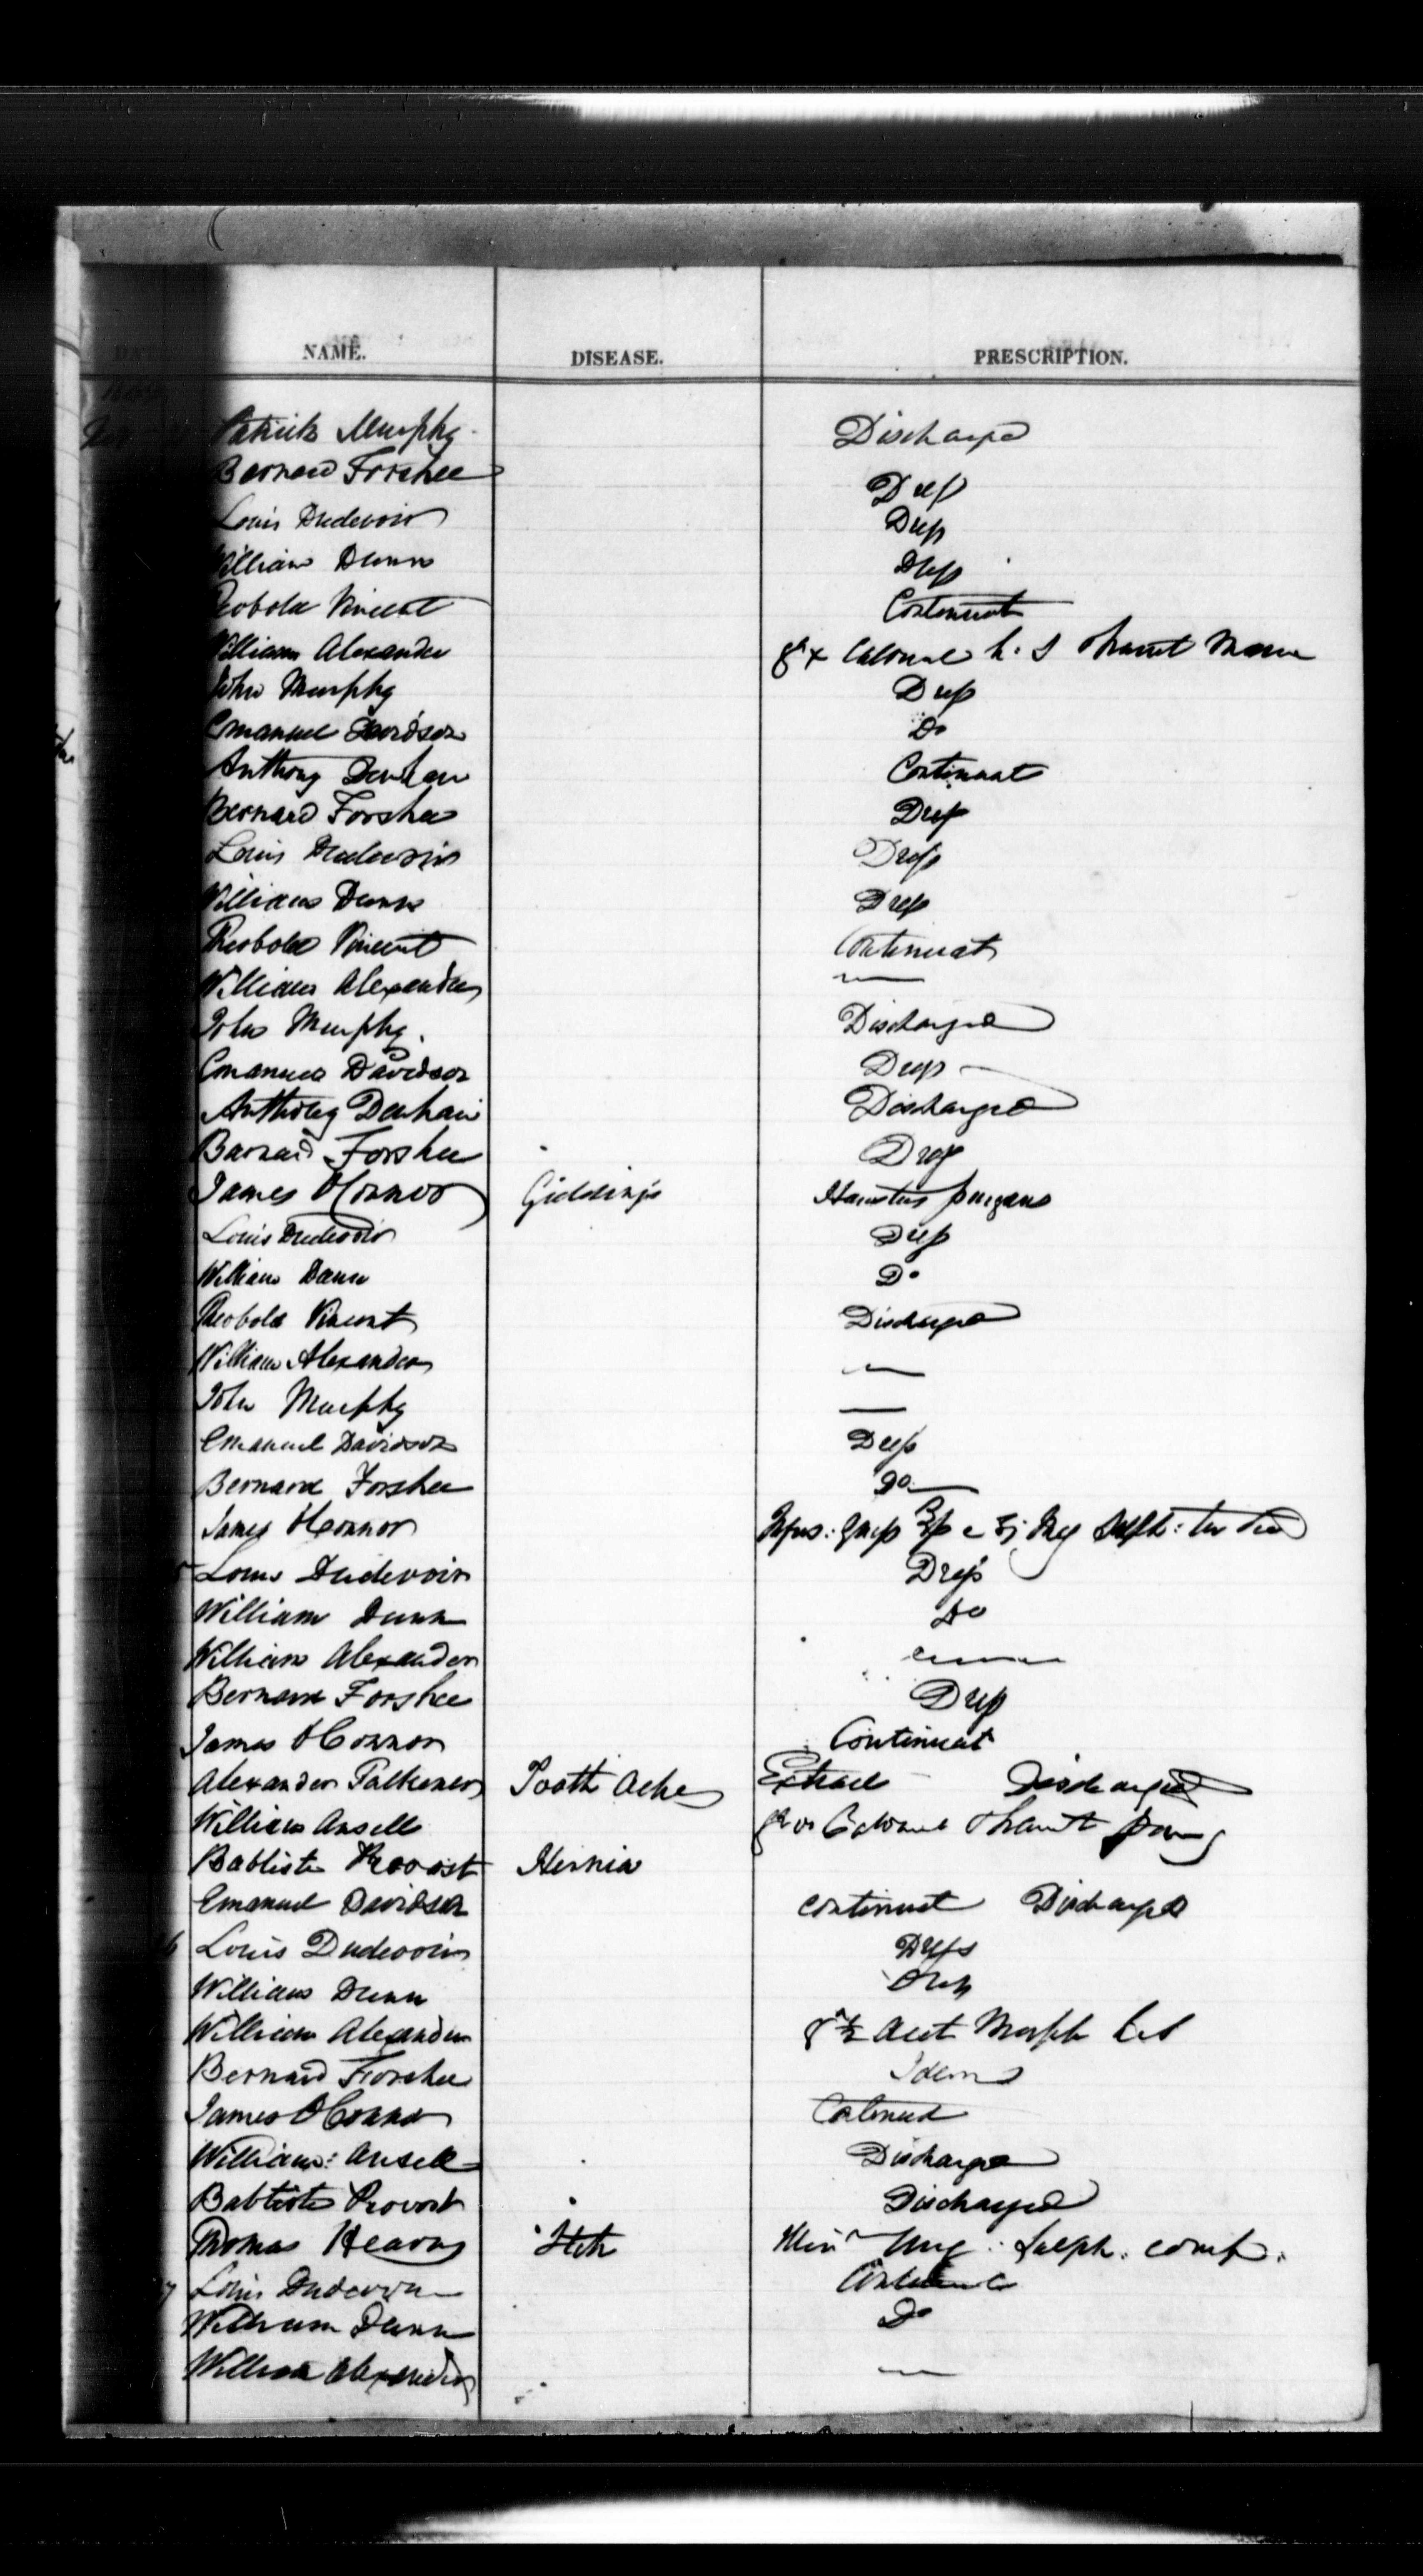 NAME. DISEASE. PRESCRIPTION.
Patrick Murphy Discharged
Bernard Forshee Dress
Louis Dudevoir Dress
William Dunn Dress
Theobold Vincent Continuat
William Alexander gr x Calomel h. s Haust Mane
John Murphy Dress
Emanuel Davidson Do
Anthony Denham Continuat
Bernard Forshee Dress
Louis Dudevoir Dress
William Dunn Dress
Theobold Vincent Continuat
William Alexander —
John Murphy. Discharged
Emanuel Davidson Dress
Anthony Denham Discharged
Barnard Forshee Dress
James OConnor Giddings Haustus purgans
Louis Dudevoir Dress
William Dunn Do
Theobold Vincent Discharged
William Alexander —
John Murphy —
Emanuel Davidson Dress
Bernard Forshee Do
James OConnor Sulph: ter die
Louis Dudevoir Dress
William Dunn Do
William Alexander —
Bernard Forshee Dress
James OConnor Continuat
Alexander Falkener Tooth Ache Extract Discharged
William Ansell Haust purg
Babtiste Provost Hernia
Emanuel Davidson Continuat Discharged
Louis Dudevoir Dress
William Dunn Dress
William Alexander gr ½ Acet Morph
Bernard Forshee Idem
James OConnor Continuat
William: Ansell Discharged
Babtiste Provost Discharged
Thomas Hearns Itch Ung: Sulph. comp.
7 Louis Dudevoir
William Dunn Do
William Alexander —